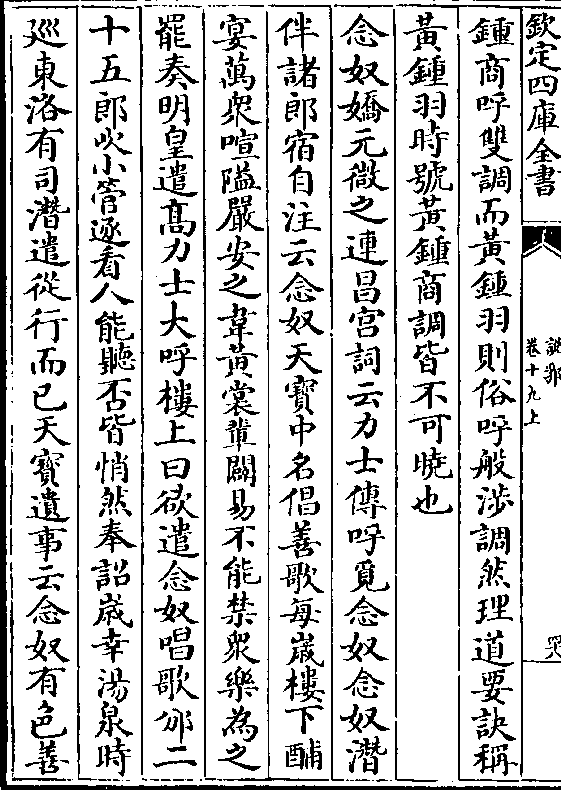 欽定四庫全書
說郛
卷十九上
鍾商呼雙調而黃鍾羽則俗呼般涉調然理道要訣稱
黃鍾羽時號黃鍾商調皆不可曉也
念奴嬌元微之連昌宫詞云力士傳呼覓念奴念奴潛
伴諸郎宿自注云念奴天寶中名倡善歌每嵗樓下酺
宴萬衆喧隘嚴安之韋黃裳輩闢易不能禁衆樂為之
罷奏明皇遣髙力士大呼樓上曰欲遣念奴唱歌邠二
十五郎吹小管逐看人能聽否皆悄然奉詔嵗幸湯泉時
廵東洛有司潛遣從行而已天寳遺事云念奴有色善